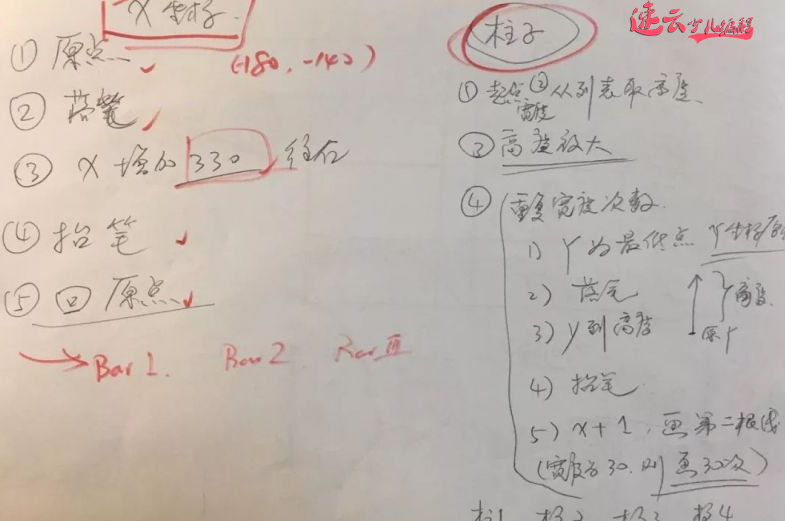 X 坐标
① 原点 (-180, -140)
② 落笔
③ X 增加 330 往右
④ 抬笔
⑤ 回原点
Bar 1. Bar 2 Bar III
速云少儿编程
柱子
① 起点 ② 从列表取高度
宽度
③ 高度放大
④ 重复宽度次数.
1) Y为最低点 Y坐标原
2) 落笔
3) y到高度
高度
原Y
4) 抬笔
5) x+1, 画第二根线
(宽度为30.则画30次)
柱1 柱2 柱3 柱4